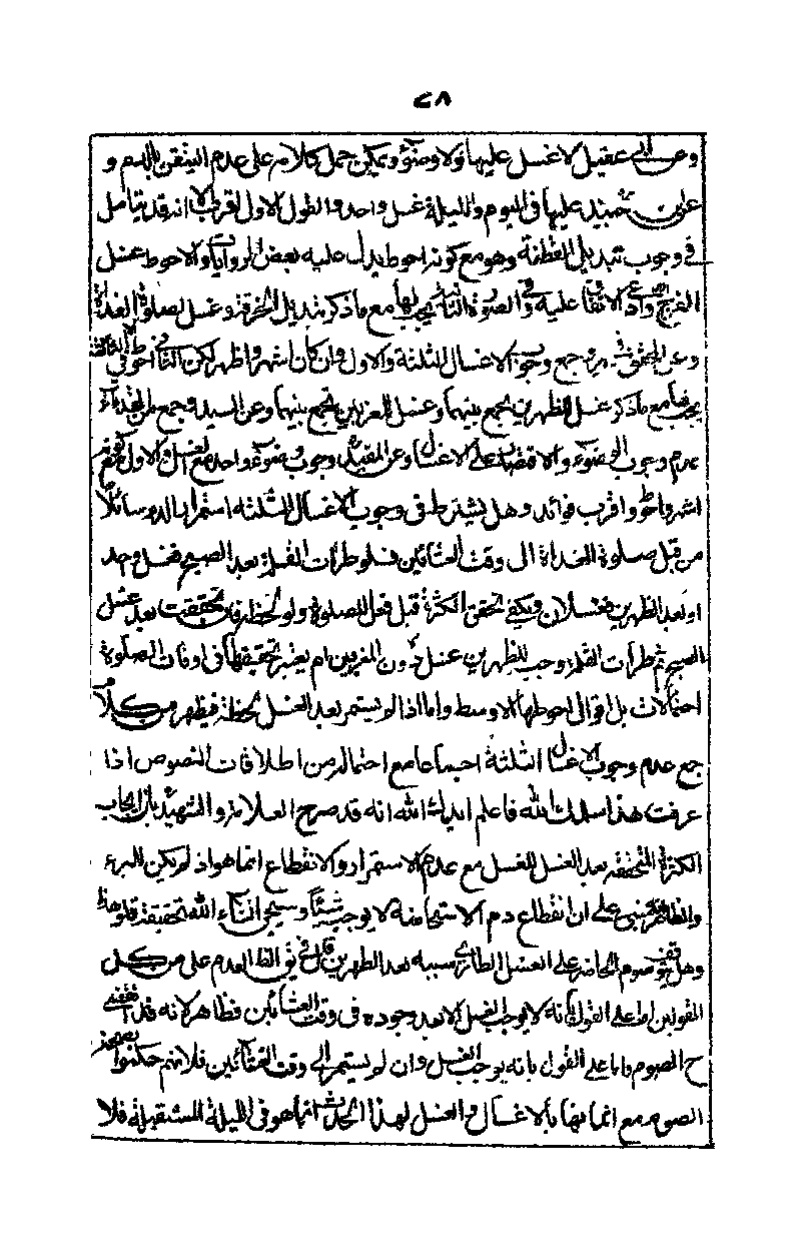 ٢٨
وعن ابي عقيل لا غسل عليها ولا وضوء ويمكن حمل كلامه على عدم الثقن بالدم و
عليها في اليوم والليلة غسل واحد والقول الاول اقرب الا انه قد يتامل
في وجوب تبديل القطنة وهو مع كونه احوط يدل عليه بعض الروايات والاحوط غسل
الفرج وادعى الاتفاق عليه وفي الصورة الثانية يجب لها مع ما ذكر تبديل الخرقة وغسل لصلوة الغداة
وعن المحقق جمع وجوب الاغسال الثلثة والاول وان كان اشهر واظهر لكن الثاني احوط وفي الثالثة
يجب مع ما ذكر غسل للظهرين تجمع بينهما وغسل للعزبين تجمع بينهما وعن السيد وجمع من القدماء
عدم وجوب الوضوء والاقتصار على الاغسال وعن المفيد وجوب وضوء واحد مع الغسل والاول
اشهر واحوط واقرب فوائد وهل يشترط في وجوب الاغسال الثلثة استمرار الدم سائلا
من قبل صلوة الغداة الى وقت العشائين فلو طرأت القلة بعد الصبح فغسل واحد
او بعد الظهرين فغسلان ويكفي تحقق الكثرة قبل فعل الصلوة ولو لحظة فان تحققت بعد غسل
الصبح ثم طرأت القلة وجب للظهرين غسل دون المغربين ام يعتبر تحققها في اوقات الصلوة
احتمالات بل اقوال احوطها الاوسط واما اذا لم يستمر بعد الغسل لحظة فيظهر من كلام
جمع عدم وجوب الاغسال الثلثة اجماعا مع احتماله من اطلاقات النصوص اذا
عرفت هذا اسلمك الله فاعلم ايدك الله انه قد صرح العلامة والشهيد بان ايجاب
الكثرة المتحققة بعد الغسل للغسل مع عدم الاستمرار والانقطاع انما هو اذ لم يكن للبرء
والظاهر انه مبني على ان انقطاع دم الاستحاضة لا يوجب شيئا وسيجئ انشاء الله تحقيقه قلو هذا
وهل يتوقف صوم الحاضر على الغسل الطاري سببه بعد الظهرين قال في نفي الظا العدم على من كل
القولين اما على القول بانه لا يوجب الغسل الا بعد وجوده في وقت العشائين فظاهر لانه قد انقضى
ح الصوم واما على القول بانه يوجب الغسل وان لم يستمر الى وقت العشائين فلانهم حكموا بصحة
الصوم مع اتيانها بالاغسال والغسل لهذا الحدث انما هو في الليلة المستقبلة فلا